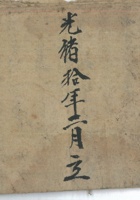 光绪拾年二月立